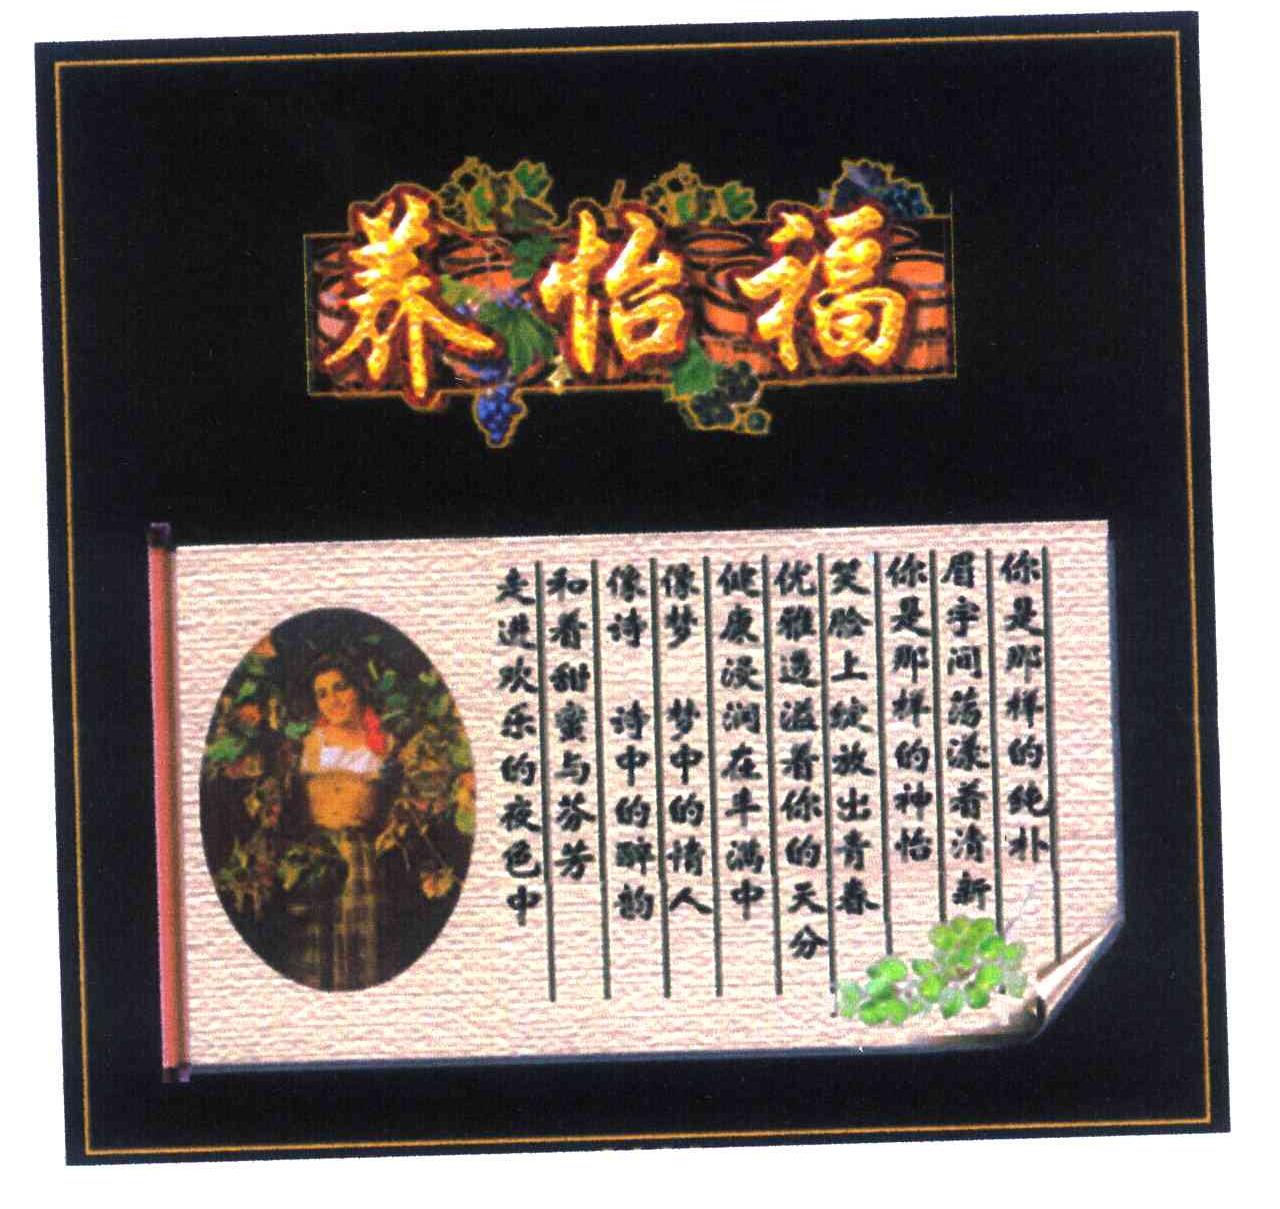 养怡福
你是那样的纯朴
眉宇间荡漾着清新
你是那样的神怡
笑脸上绽放出青春
优雅透溢着你的天分
健康浸润在丰满中
像梦 梦中的情人
像诗 诗中的醉韵
和着甜蜜与芬芳
走进欢乐的夜色中